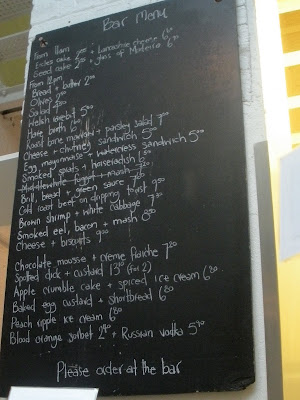 Bar Menu
From 11am
Eccles cake + Lancashire cheese 6.80
Seed cake + glass of Madeira 6.90
From 12pm
Bread + butter 2.00
Olives
Salad
Welsh rarebit 5.00
Hare broth 6.40
Roast bone marrow + parsley salad
Cheese + chutney sandwich 5.00
Egg mayonnaise + watercress sandwich 5.00
Smoked sprats + horseradish
Brill, bread + green sauce
Cold roast beef on dripping toast 9.50
Brown shrimp + white cabbage 7.30
Smoked eel, bacon + mash 8.50
Cheese + biscuits
Chocolate mousse + creme fraiche 7.20
Spotted dick + custard (for 2)
Apple crumble cake + spiced ice cream 6.80
Baked egg custard + shortbread 6.80
Peach ripple ice cream 6.80
Blood orange sorbet + Russian vodka
Please order at the bar